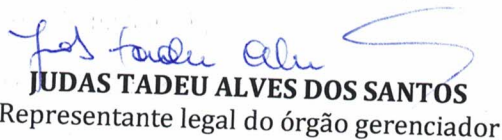 JUDAS TADEU ALVES DOS SANTOS
Representante legal do órgão gerenciador